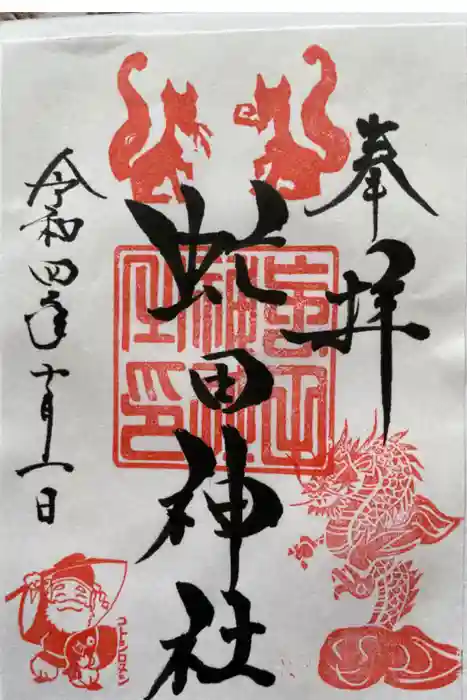 奉拝
虻田神社
令和四年十月十一日